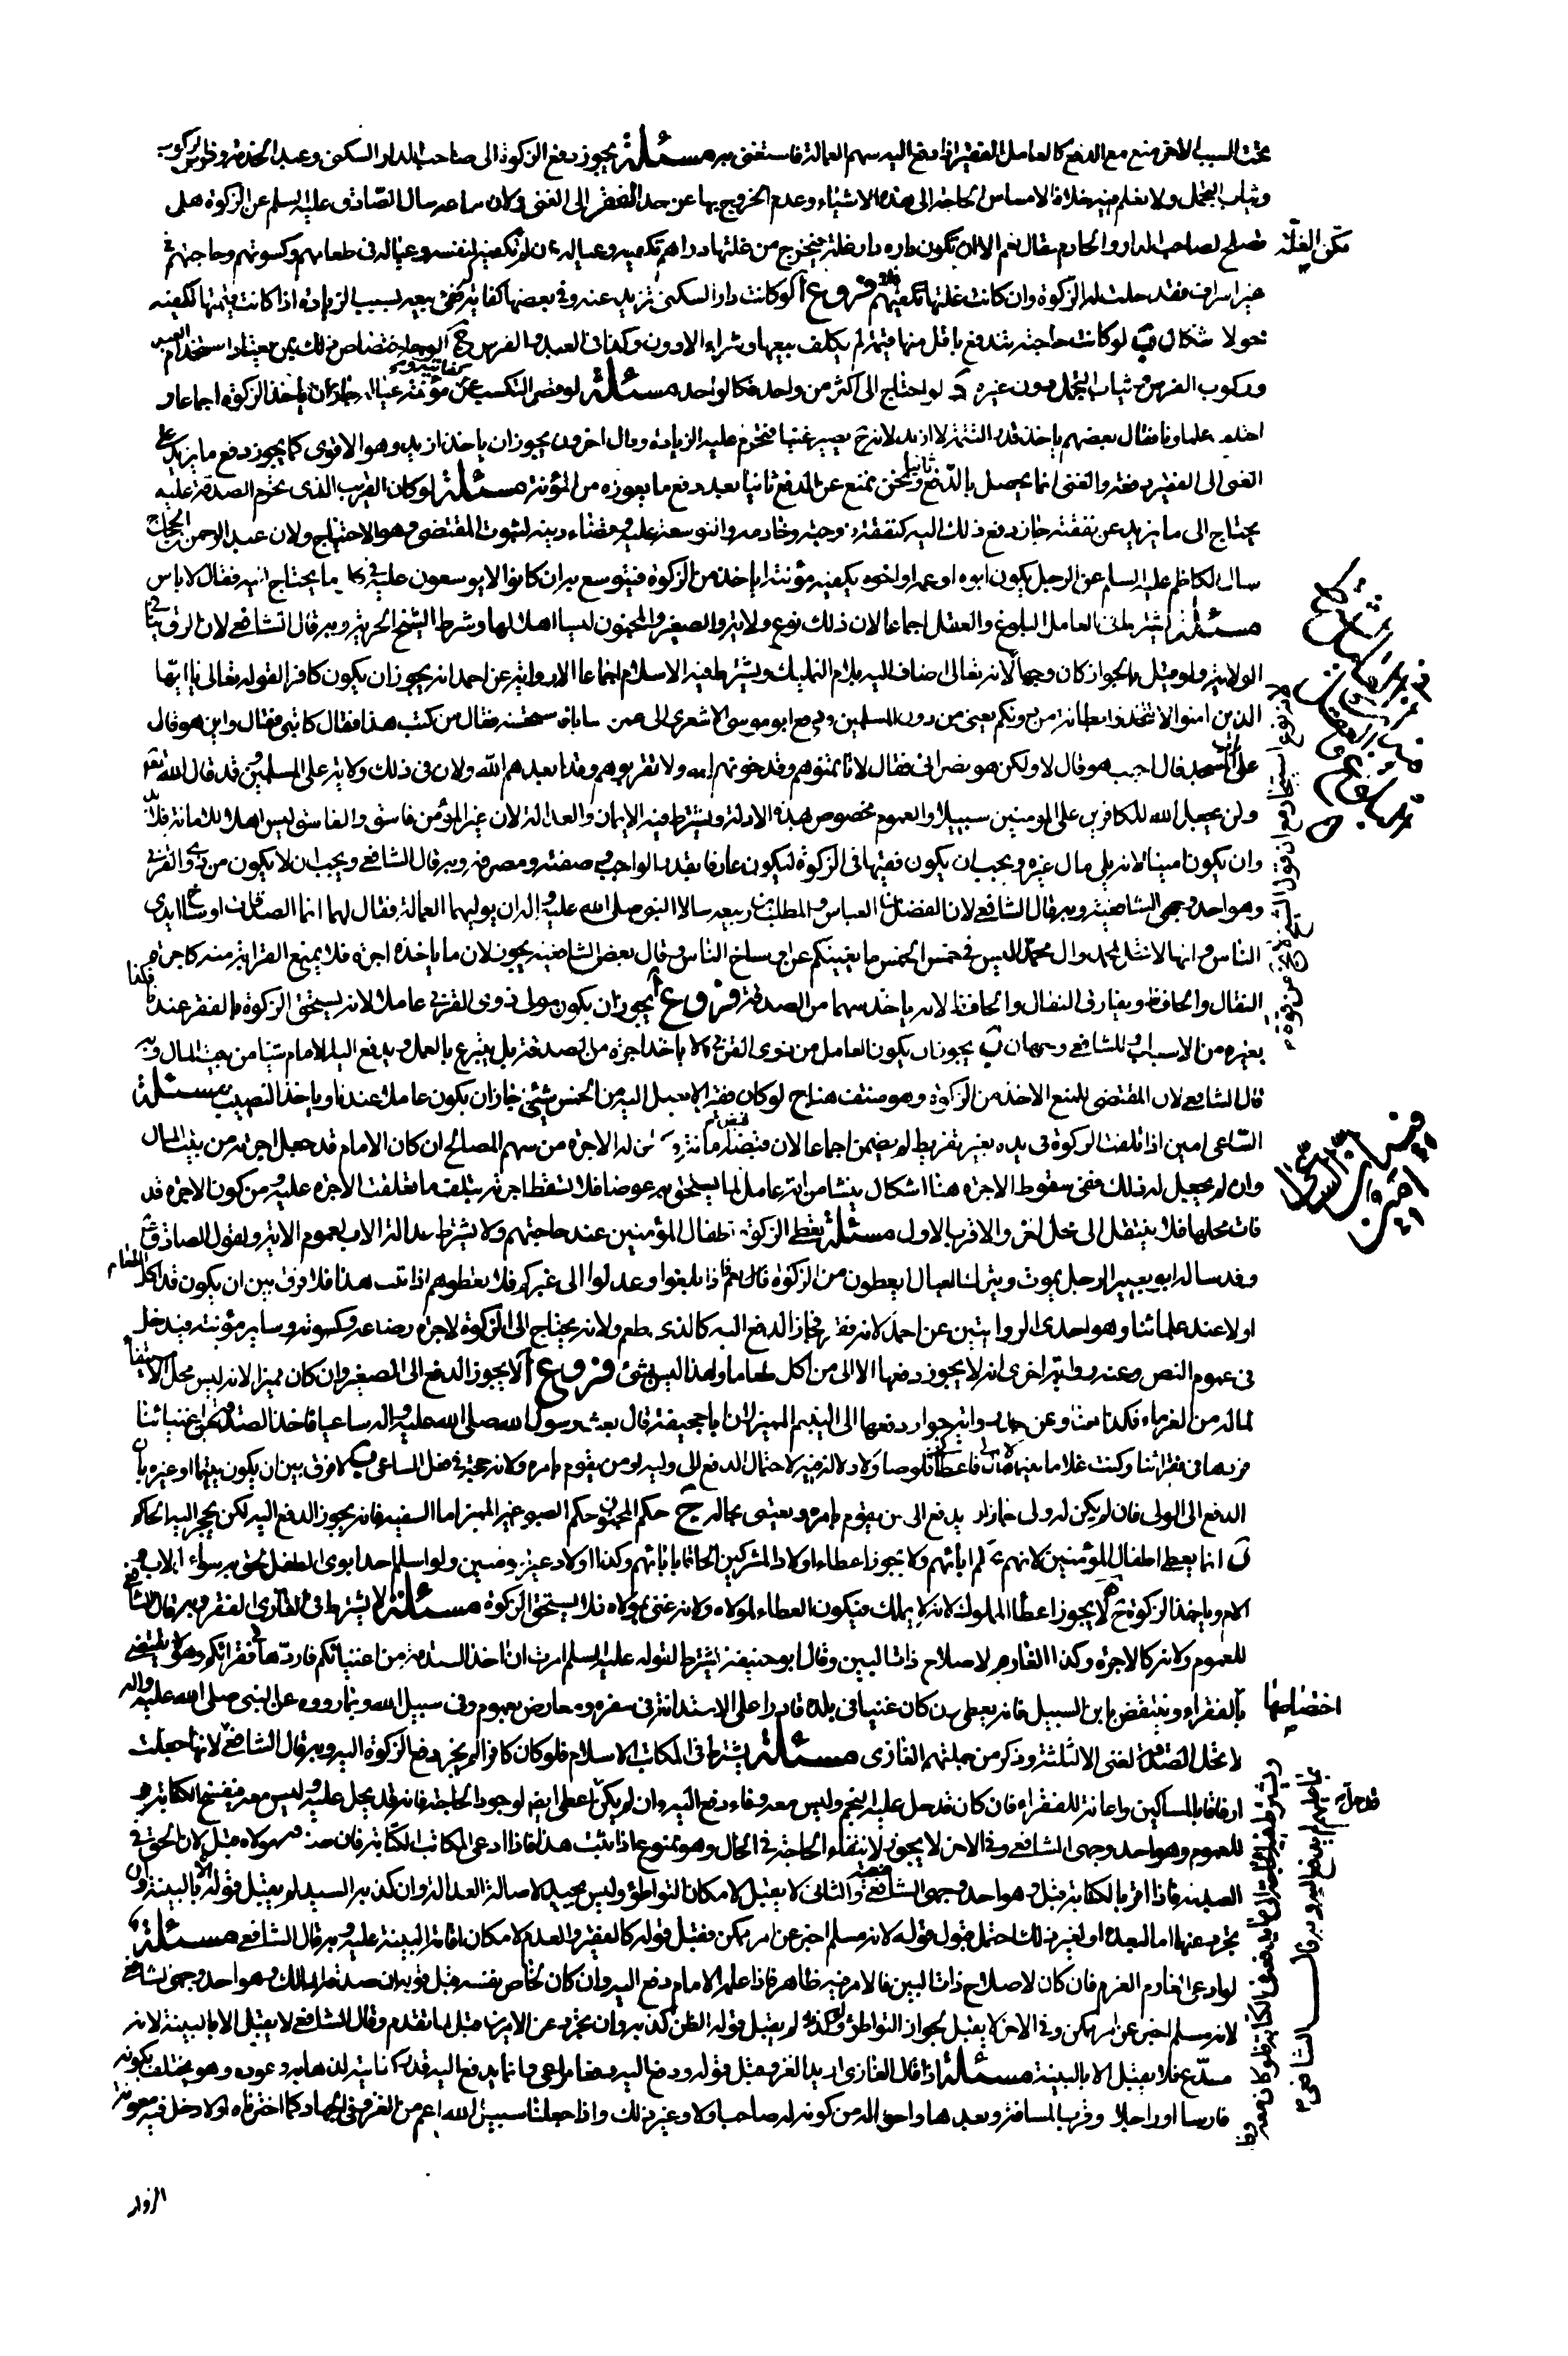 بجهت السبب الآخر منع مع الدفع كالعامل الفقير اذا دفع اليه سهم العمالة فاستغنى به مسئلة يجوز دفع الزكوة الى صاحب الدار السكنى وعبد الخدمة وفرس الركوب
وثياب التجمل ولا نعلم فيه خلافا لامساس الحاجة الى هذه الاشياء وعدم الخروج بها عن حد الفقر الى الغنى ولان سماعه سال الصادق عليه السلم عن الزكوة هل
تصلح لصاحب الدار والخادم فقال نعم الا ان تكون داره دار غلة فيخرج من غلتها دراهم تكفيه وعياله فان لم تكفه لنفسه وعياله في طعامهم وكسوتهم وحاجتهم في
غير اسراف فقد حلت له الزكوة وان كانت غلتها تكفيهم فلا فروع آ لو كانت دار السكنى تزيد عنه وفي بعضها كفايته ففي بيعه بسبب الزيادة اذا كانت قيمتها تكفيه
حولا اشكال ب لو كانت حاجته تندفع باقل منها قيمة لم يكلف بيعها وشراء الادون وكذا في العبد والفرس ج الوجه اختصاص ذلك بمن يعتاد استخدام العبيد
وركوب الفرس وثياب التجمل دون غيره د لو احتاج الى اكثر من واحد فكالواحد مسئلة لو قصر التكسب عن مؤنته ومؤنة عياله جاز ان ياخذ الزكوة اجماعا و
اختلف علماؤنا فقال بعضهم ياخذ قدر التتمة لا ازيد لانه ح يصير غنيا فتحرم عليه الزيادة وقال اخرون يجوز ان ياخذ ازيد وهو الاقوى كما يجوز دفع ما يزيد على
الغنى الى الفقير دفعة والغنى انما يحصل بالدفع ونحن نمنع عن الدفع ثانيا بعد دفع ما يعوزه من المؤنة مسئلة لو كان القريب الذى يحرم الصدقة عليه
يحتاج الى ما يزيد عن نفقته جاز دفع ذلك اليه كنفقة زوجته وخادمه والتوسعة عليه وقضاء دينه لثبوت المقتضى وهو الاحتياج ولان عبد الرحمن بن الحجاج
سال الكاظم عليه السلم عن الرجل يكون ابوه او عمه او اخوه يكفيه مؤنته اياخذ من الزكوة فيتوسع به ان كانوا لا يوسعون عليه في كل ما يحتاج اليه فقال لا باس
مسئلة يشترط في العامل البلوغ والعقل اجماعا لان ذلك نوع ولاية والصغير والمجنون ليسا اهلا لها وشرط الشيخ الحرية وبه قال الشافعي لان الرق ينافي
الولاية ولو قيل بالجواز كان وجها لانه تعالى اضاف اليه بلام التمليك ويشترط فيه الاسلام اجماعا الا رواية عن احمد انه يجوز ان يكون كافرا لقوله تعالى يا ايها
الذين امنوا لا تتخذوا بطانة من دونكم يعنى من دون المسلمين ودفع ابو موسى الاشعرى الى عمر حسابا فاستحسنه فقال من كتب هذا فقال كاتبى فقال واين هو قال
على باب المسجد قال اجنب هو قال لا ولكن هو نصرانى فقال لا تأتمنوهم وقد خونهم الله ولا تقربوهم وقد ابعدهم الله ولان في ذلك ولاية على المسلمين وقد قال الله تعالى
ولن يجعل الله للكافرين على المومنين سبيلا والعموم مخصوص بهذه الادلة ويشترط فيه الايمان والعدالة لان غير المؤمن فاسق والفاسق ليس اهلا للامانة فلابد
وان يكون امينا لانه يلى مال غيره ويجب ان يكون فقيها في الزكوة ليكون عارفا بقدر الواجب وصفته ومصرفه وبه قال الشافعي ويجب ان لا يكون من ذوى القربى
وهو احد وجهى الشافعية وبه قال الشافعي لان الفضل بن العباس والمطلب بن ربيعة سالا النبى صلى الله عليه واله ان يوليهما العمالة فقال لهما انما الصدقات اوساخ ايدى
الناس وانها لا تحل لمحمد وال محمد اليس في خمس الخمس ما يغنيكم عن اوساخ الناس وقال بعض الشافعية يجوز لان ما ياخذه اجرة فلا يمنع القرابة منه كاجرة
النقال والحافظ ويفارق النقال والحافظ لانه ياخذ سهما من الصدقة فروع آ يجوز ان يكون مولى ذوى القربى عاملا لانه يستحق الزكوة بالفقر عندنا فكذا
بغيره من الاسباب وللشافعي وجهان ب يجوز ان يكون العامل من ذوى القربى اذا لم ياخذ اجرة من الصدقة بل يتبرع بالعمل ويدفع اليه الامام شيئا من بيت المال وبه
قال الشافعي لان المقتضى للمنع الاخذ من الزكوة وهو منتف هنا ج لو كان فقيرا لا يصل اليه من الخمس شىء جاز ان يكون عاملا عندنا وياخذ النصيب مسئلة
الساعى امين اذا تلفت الزكوة في يده بغير تفريط لم يضمن اجماعا لان قبضه قبض امانة له الاجرة من سهم المصالح ان كان الامام قد جعل اجرته من بيت المال
وان لم يجعل له ذلك ففى سقوط الاجرة هنا اشكال ينشا من انه عامل لما يستحق به عوضا فلا تسقط اجرته بتلف ما تعلقت الاجرة عليه ومن كون الاجرة قد
فات محلها فلا ينتقل الى محل اخر والاقرب الاول مسئلة يعطى الزكوة اطفال المؤمنين عند حاجتهم ولا يشترط عدالة الاب لعموم الاية ولقول الصادق ع
وقد ساله ابو بصير الرجل يموت ويترك العيال ايعطون من الزكوة قال نعم فاذا بلغوا وعدلوا الى غيركم فلا يعطوهم اذا ثبت هذا فلا فرق بين ان يكون قد اكل الطعام
اولا عند علمائنا وهو احدى الروايتين عن احمد لانه فقير فجاز الدفع اليه كالذى طعم ولانه يحتاج الى الزكوة لاجرة رضاعه وكسوته وساير مؤنته فيدخل
في عموم النص وعنه رواية اخرى انه لا يجوز دفعها الا الى من اكل طعاما وهذا ليس بشئ فروع آ لا يجوز الدفع الى الصغير وان كان مميزا لانه ليس محل الاستيفاء
لماله من الغرماء فكذا هنا وعن رواية جواز دفعها الى اليتيم المميز لان ابا جحيفة قال بعث رسول الله صلى الله عليه واله ساعيا فاخذ الصدقة من اغنيائنا
فردها في فقرائنا وكنت غلاما يتيما لا مال لى فاعطانى قلوصا ولا دلالة فيه لاحتمال الدفع الى وليه او من يقوم بامره ولانه حجة في فعل الساعى ب لا فرق بين ان يكون يتيما او غيره بان
الدفع الى الولى فان لم يكن له ولى جاز ان يدفع الى من يقوم بامره ويعتنى بحاله ج حكم المجنون حكم الصبى غير المميز اما السفيه فانه يجوز الدفع اليه لكن يحجر اليه الحاكم
د انما يعطى اطفال المؤمنين لانهم بحكم ابائهم ولا يجوز اعطاء اولاد المشركين الحاقا بابائهم وكذا اولاد غير مؤمنين ولو اسلم احد ابوى الطفل لحق به سواء الاب و
الام وياخذ الزكوة ح ه لا يجوز اعطاء المملوك لانه لا يملك فيكون العطاء لمولاه ولانه غنى بمولاه فلا يستحق الزكوة مسئلة لا يشترط في الغازى الفقر وبه قال الشافعي
للعموم ولانه كالاجرة وكذا الغارم لاصلاح ذات البين وقال ابو حنيفة يشترط لقوله عليه السلم امرت ان اخذ الصدقة من اغنيائكم فاردها في فقرائكم وهو لا يقتضى
بالفقراء وينتقض بابن السبيل فانه يعطى وان كان غنيا في بلده قادرا على الاستدانة في سفره ومعارض بعموم وفى سبيل الله وبما رووه عن النبى صلى الله عليه واله
لا تحل الصدقة لغنى الا لثلثة وذكر من جملتهم الغازى مسئلة يشترط في المكاتب الاسلام فلو كان كافرا لم يجز دفع الزكوة اليه وبه قال الشافعي لانها جعلت
ارفاقا بالمساكين واعانة للفقراء فان كان قد حل عليه النجم وليس معه وفاء دفع اليه وان لم يكن اعطى ايضا لوجود الحاجة فانه قد يحل عليه وليس معه فيفسخ الكتابة
للعموم وهو احد وجهى الشافعي وفى الاخر لا يجوز لانتفاء الحاجة في الحال وهو ممنوع اذا ثبت هذا فاذا ادعى المكاتب الكتابة فان صدقه مولاه قبل لان الحق في
العبد له فاذا اقر بالكتابة قبل وهو احد وجهى الشافعية والثانى لا يقبل لامكان التواطؤ وليس بجيد لاصالة العدالة وان كذبه السيد لم يقبل قوله الا بالبينة وان
تجرد عنهما اما لبعده او لغير ذلك احتمل قبول قوله لانه مسلم اخبر عن امر ممكن فقبل قوله كالفقير والعدم لامكان اقامة البينة عليه وبه قال الشافعي مسئلة
لو ادعى الغارم الغرم فان كان لاصلاح ذات البين فالامر فيه ظاهر فاذا علم الامام دفع اليه وان كان لخاص نفسه قبل قوله ان صدقه المالك وهو احد وجهى الشافعي
لانه مسلم اخبر عن امر ممكن وفى الاخر لا يقبل لجواز التواطؤ ولو كذبه لم يقبل قوله لظن كذبه وان تجرد عن الامرين قبل لما تقدم وقال الشافعي لا يقبل الا بالبينة لانه
مدع فلا يقبل الا بالبينة مسئلة اذا قال الغازى اريد الغزو قبل قوله ودفع اليه دفعا مراعى وانما يدفع اليه قدر كفايته لذهابه وعوده وهو يختلف بكونه
فارسا او راجلا وقرب المسافة وبعدها واحواله من كونه له صاحب اولا وغير ذلك واذا جعلنا سبيل الله اعم من الغزو في الجهاد كما اخترناه اولا دخل فيه معونة
الزوار